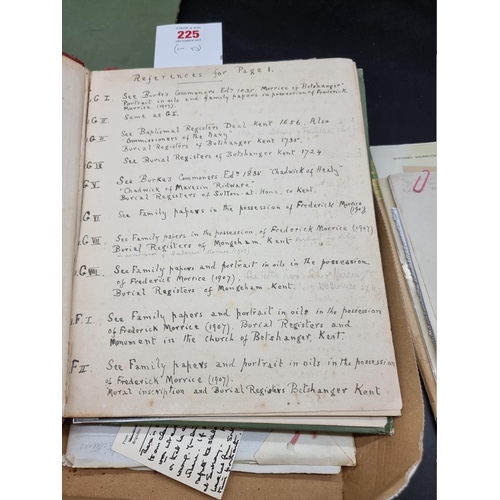 225
References for Page 1.
G I. See Burke's Commoners Edn 1835 Morrice of Betshanger.
Portrait in oils and family papers in possession of Frederick
Morrice (1907).
G II. Same as G I.
G III. See Baptismal Registers Deal Kent 1656. Also
"Commissioners of the Navy"
Burial Registers of Betshanger Kent 1735.
G IV See Burial Registers of Betshanger Kent 1724
G V. See Burkes Commoners Edn 1838 "Chadwick of Healy"
"Chadwick of Mavesin Ridware"
Burial Registers of Sutton-at-Hone, co Kent.
G VI See Family papers in the possession of Frederick Morrice
(1907
G VII See Family papers in the possession, of Frederick Morrice (1907)
Burial Registers of Mongeham. Kent
G VIII See Family papers and portrait in oils in the possession
of Frederick Morrice (1907).
Burial Registers of Mongeham Kent.
F I. See Family papers and portrait in oils in the possession
of Frederick Morrice (1907). Burial Registers and
Monument in the Church of Betshanger, Kent.
F II. See Family papers and portrait in oils in the possession
of Frederick Morrice (1907).
Mural inscription and Burial Registers Betshanger Kent